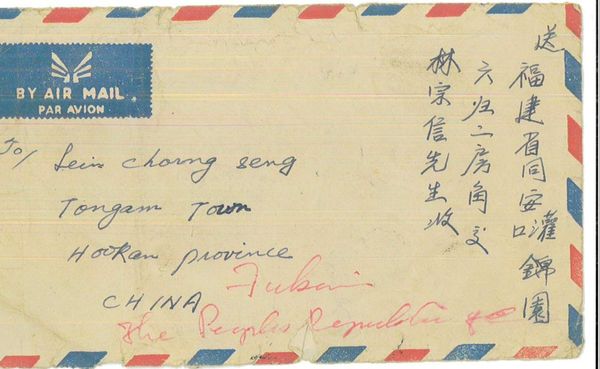 BY AIR MAIL
PAR AVION
送
福建省同安灌口錦園
六归二房角交
林宗信先生收
To/ Leim Chorng seng
Tongam Town
Hookan province
Fukien
CHINA
The Peoples Republic